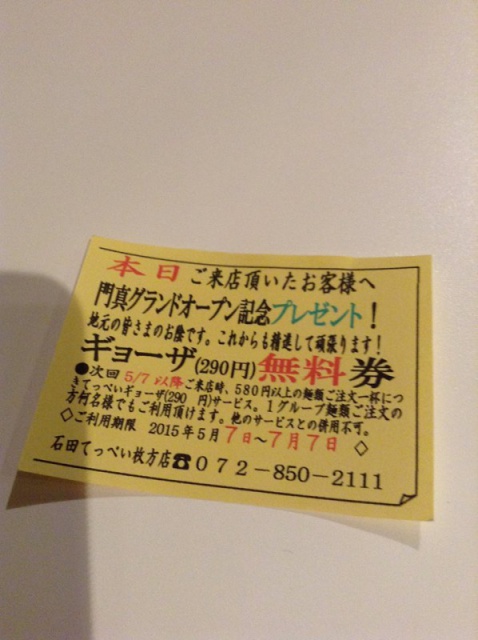 本日ご来店頂いたお客様へ
門真グランドオープン記念プレゼント!
地元の皆さまのお陰です。これからも精進して頑張ります!
ギョーザ(290円)無料券
●次回5/7以降ご来店時、580円以上の麺類ご注文一杯につ
きてっぺいギョーザ(290 円)サービス。1グループ麺類ご注文の
方何名様でもご利用頂けます。他のサービスとの併用不可。
◇ご利用期限 2015年5月7日〜7月7日 ◇
石田てっぺい枚方店☎072-850-2111